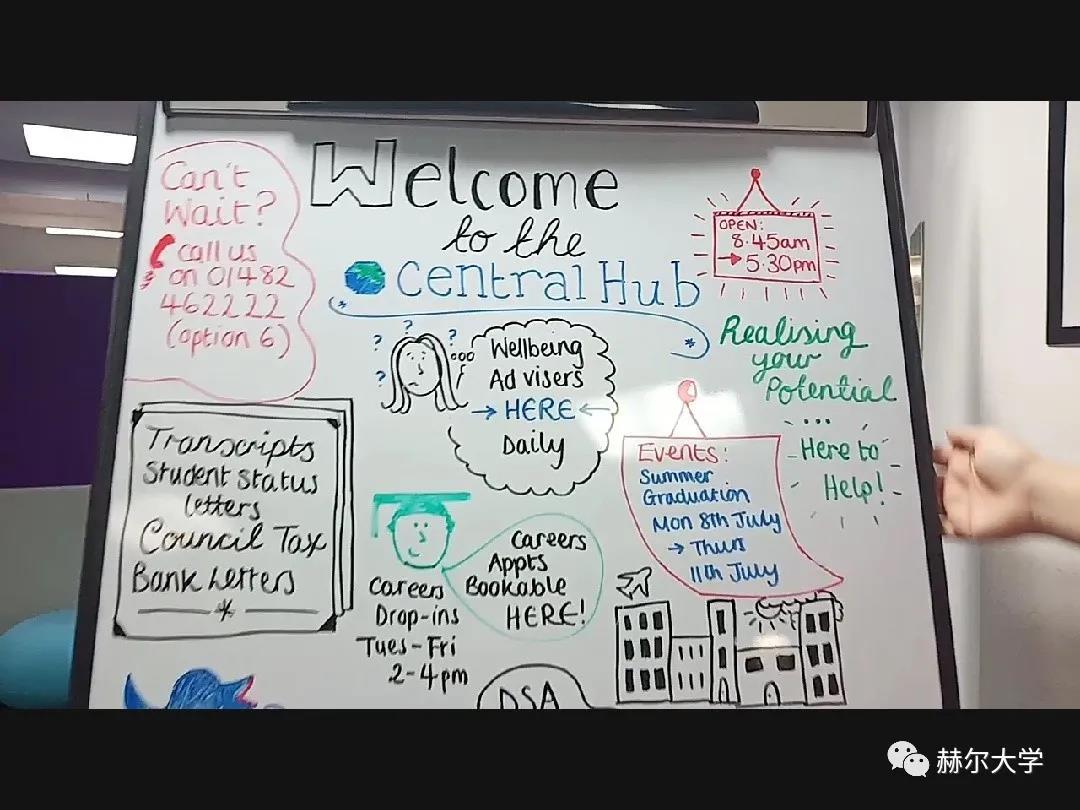 Can't
Wait?
call us
on 01482
462222
(option 6)
Welcome
to the
Central Hub
OPEN:
8.45am
→ 5.30pm
Realising
your
Potential
...
Here to
Help!
? ? ?
?
Wellbeing
Advisers
→ HERE ←
Daily
Transcripts
Student Status
Letters
Council Tax
Bank Letters
Careers
Drop-ins
Tues-Fri
2-4pm
Careers
Appts
Bookable
HERE!
Events:
Summer
Graduation
Mon 8th July
→ Thurs
11th July
DSA
赫尔大学